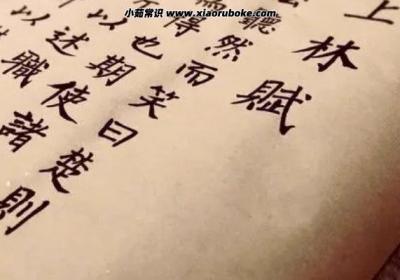 小茹常识 www.xiaoruboke.com
上林賦
聽然而笑曰楚則
為得也期使諸
以述職
以